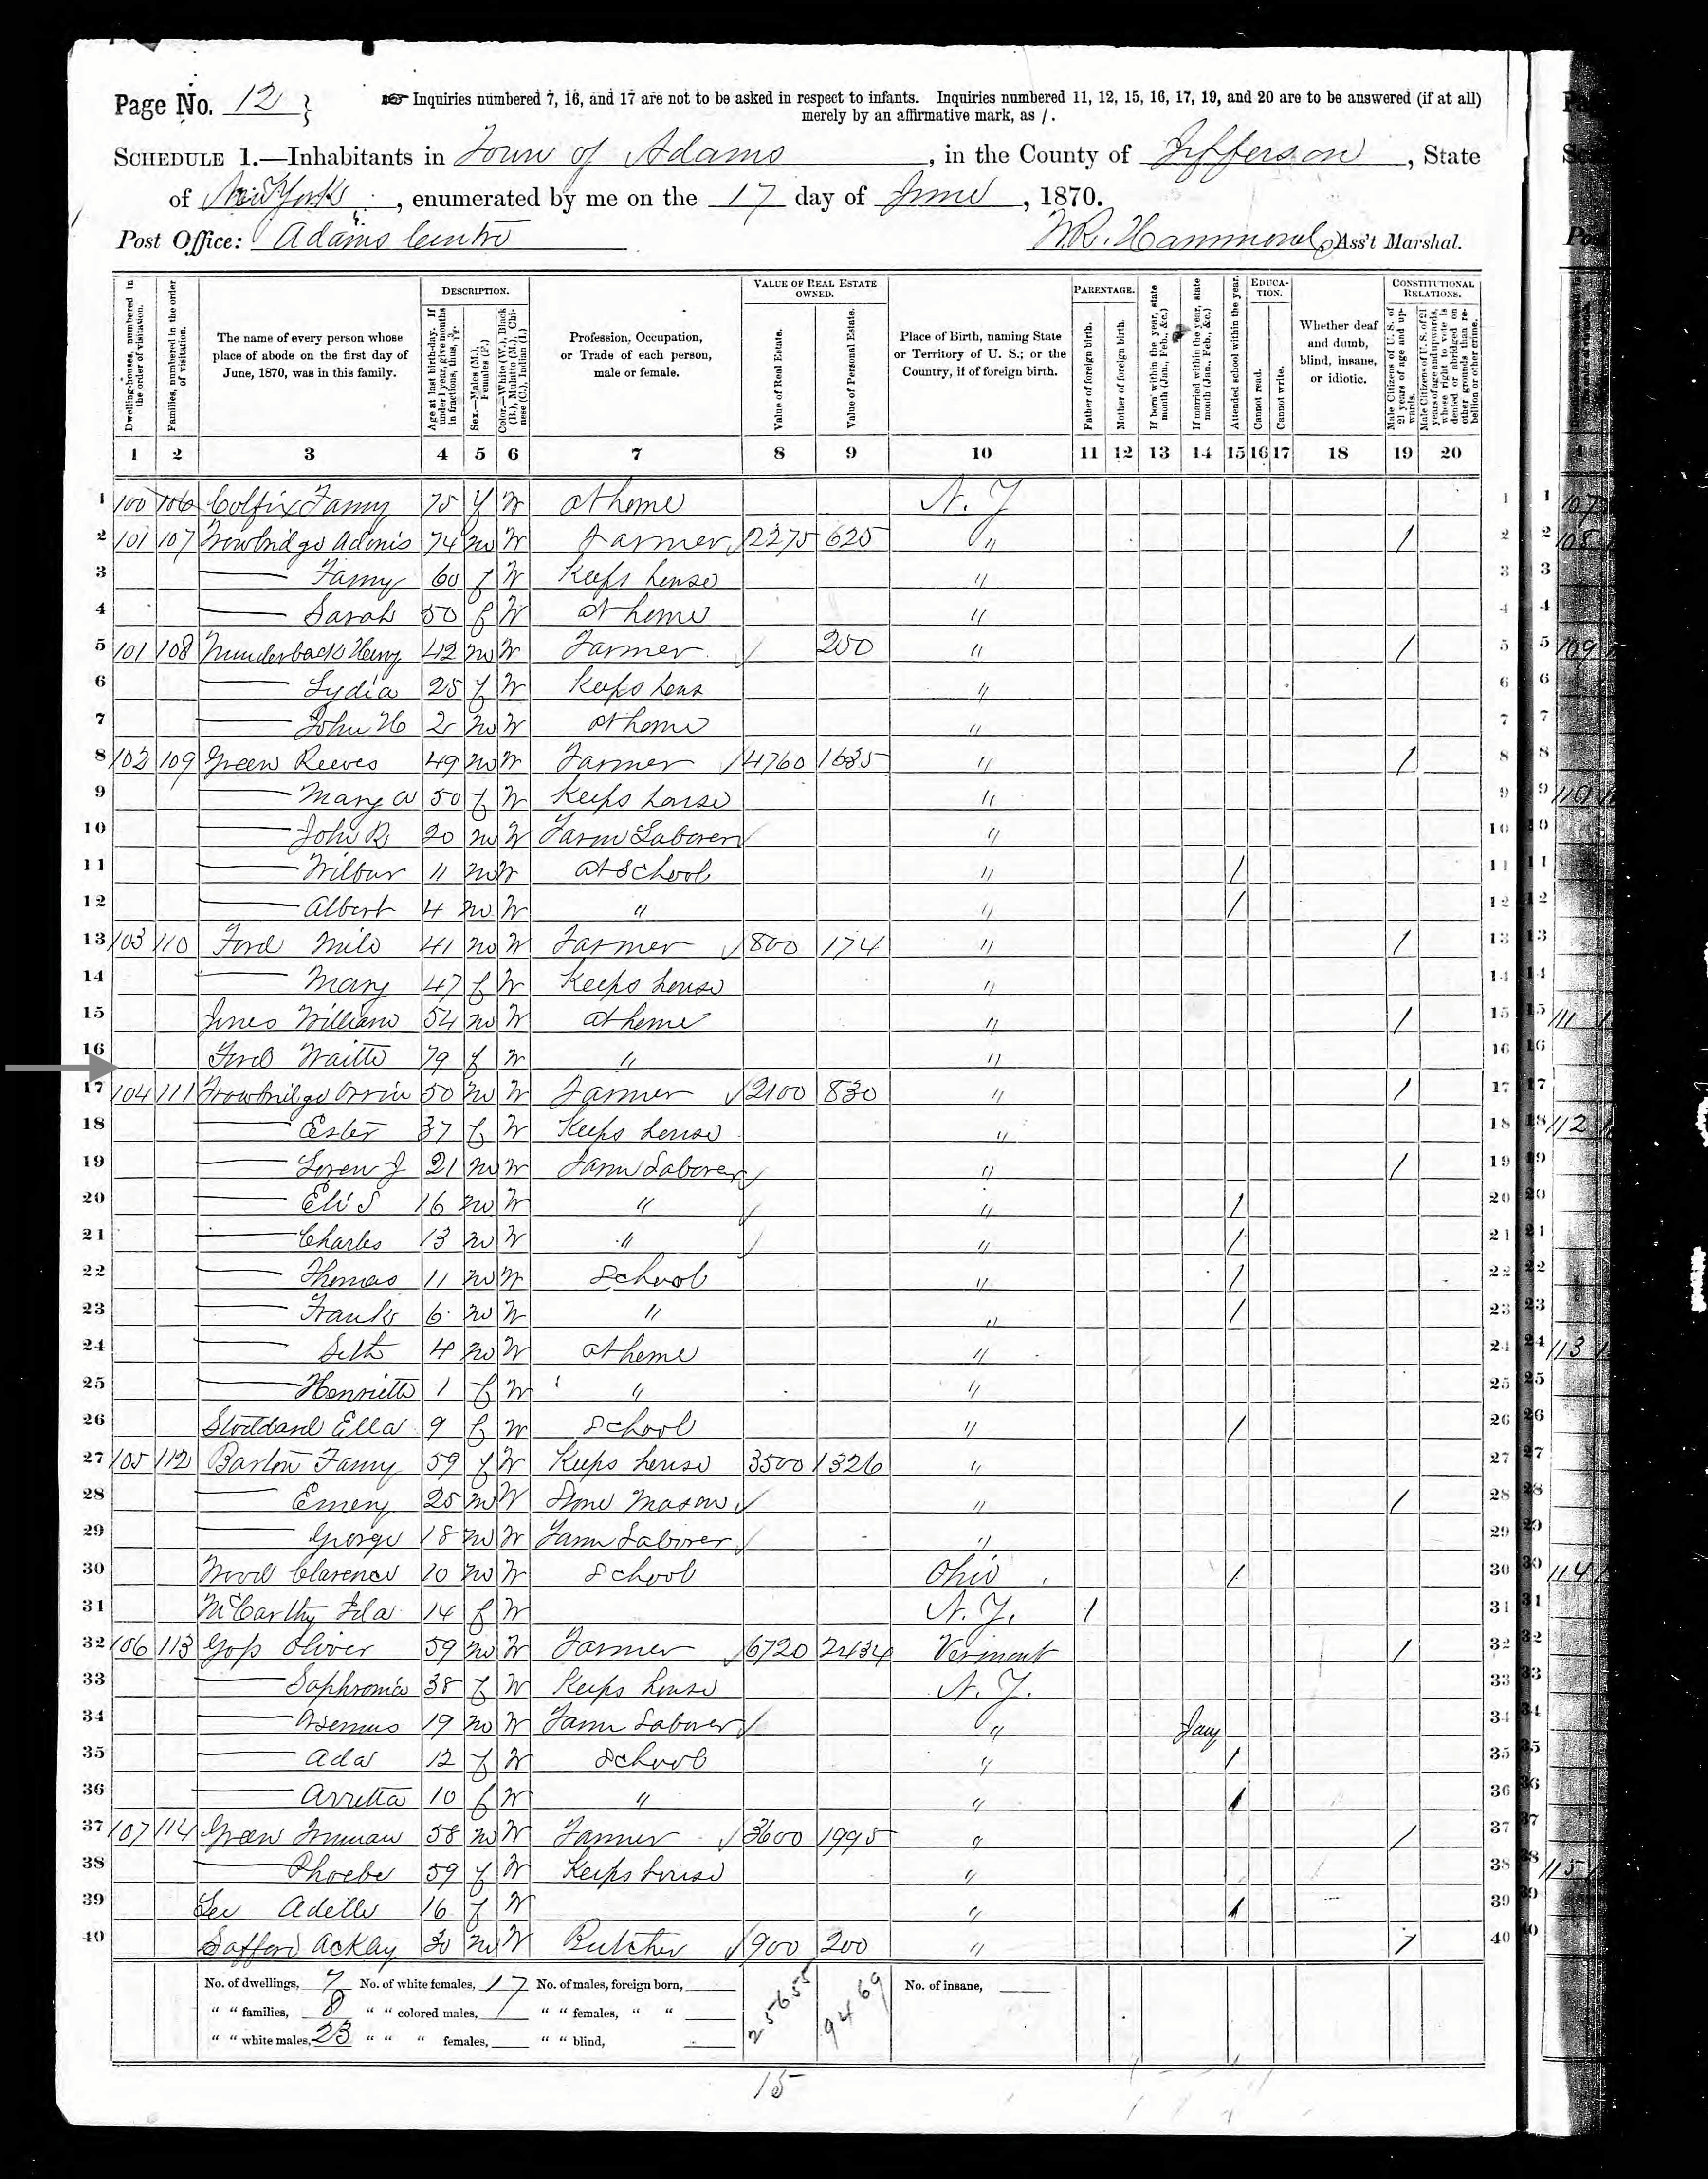 Page No. 12 } ☞ Inquiries numbered 7, 16, and 17 are not to be asked in respect to infants. Inquiries numbered 11, 12, 15, 16, 17, 19, and 20 are to be answered (if at all)
merely by an affirmative mark, as /.
SCHEDULE 1.—Inhabitants in Town of Adams, in the County of Jefferson, State
of New York, enumerated by me on the 17 day of June, 1870.
Post Office: Adams Centre Hammond, Ass't Marshal.
Dwelling-houses, numbered in the order of visitation.
Families, numbered in the order of visitation.
The name of every person whose place of abode on the first day of June, 1870, was in this family.
DESCRIPTION.
Age at last birth-day. If under 1 year, give months in fractions, thus,
Sex.—Males (M.), Females (F.)
Color.—White (W.), Black (B.), Mulatto (M.), Chinese (C.), Indian (I.)
Profession, Occupation, or Trade of each person, male or female.
VALUE OF REAL ESTATE OWNED.
Value of Real Estate.
Value of Personal Estate.
Place of Birth, naming State or Territory of U. S.; or the Country, if of foreign birth.
PARENTAGE.
Father of foreign birth.
Mother of foreign birth.
If born within the year, state month (Jan., Feb., &c.)
If married within the year, state month (Jan., Feb., &c.)
Attended school within the year.
EDUCATION.
Cannot read.
Cannot write.
Whether deaf and dumb, blind, insane, or idiotic.
CONSTITUTIONAL RELATIONS.
Male Citizens of U. S. of 21 years of age and upwards.
Male Citizens of U. S. of 21 years of age and upwards, whose right to vote is denied or abridged on other grounds than rebellion or other crime.
1 2 3 4 5 6 7 8 9 10 11 12 13 14 15 16 17 18 19 20
1 100 106 Colfix Fanny 75 f W at home N. Y 1
2 101 107 Trowbridge Adonis 74 m W Farmer 2275 625 " / 2
3 —— Fanny 60 f W Keeps house " 3
4 —— Sarah 50 f W at home " 4
5 101 108 Henry 42 m W Farmer 250 " / 5
6 —— Lydia 25 f W Keeps hous " 6
7 —— John H 2 m W at home " 7
8 102 109 Green Reeves 49 m W Farmer 4760 1635 " / 8
9 —— Mary A 50 f W Keeps house " 9
10 —— John R 20 m W Farm Laborer " 10
11 —— Wilbur 11 m W at School " / 11
12 —— Albert 4 m W " " / 12
13 103 110 Ford Milo 41 m W Farmer 800 174 " / 13
14 —— Mary 47 f W Keeps house " 14
15 Jones William 54 m W at home " / 15
16 Ford Waitte 79 f W " " 16
17 104 111 Trowbridge Orrin 50 m W Farmer 2100 830 " / 17
18 —— Ester 37 f W Keeps house " 18
19 —— Loren J 21 m W Farm Laborer " / 19
20 —— Eli S 16 m W " " / 20
21 —— Charles 13 m W " " / 21
22 —— Thomas 11 m W School " / 22
23 —— Frank 6 m W " " / 23
24 —— Seth 4 m W at home " 24
25 —— Henrietta 1 f W " " 25
26 Stoddard Ella 9 f W School " / 26
27 105 112 Barton Fanny 59 f W Keeps house 3500 1326 " 27
28 —— Emery 25 m W Stone Mason " / 28
29 —— George 18 m W Farm Laborer " 29
30 Wood Clarence 10 m W School Ohio / 30
31 McCarthy Ida 14 f W N. Y. / 31
32 106 113 Goss Oliver 59 m W Farmer 6720 2434 Vermont / 32
33 —— Sophronia 38 f W Keeps house N. Y. 33
34 —— 19 m W Farm Laborer " Jany 34
35 —— Ada 12 f W School " / 35
36 —— Arretta 10 f W " " / 36
37 107 114 Green Truman 58 m W Farmer 3600 1995 " / 37
38 —— Phoebe 59 f W Keeps house " 38
39 Lee Adelle 16 f W " / 39
40 Safford Ackley 30 m W Butcher 900 200 " / 40
No. of dwellings, 7 No. of white females, 17 No. of males, foreign born, 25655 9469 No. of insane,
" " families, 8 " " colored males, " " females, " "
" " white males, 23 " " " females, " " blind,
15